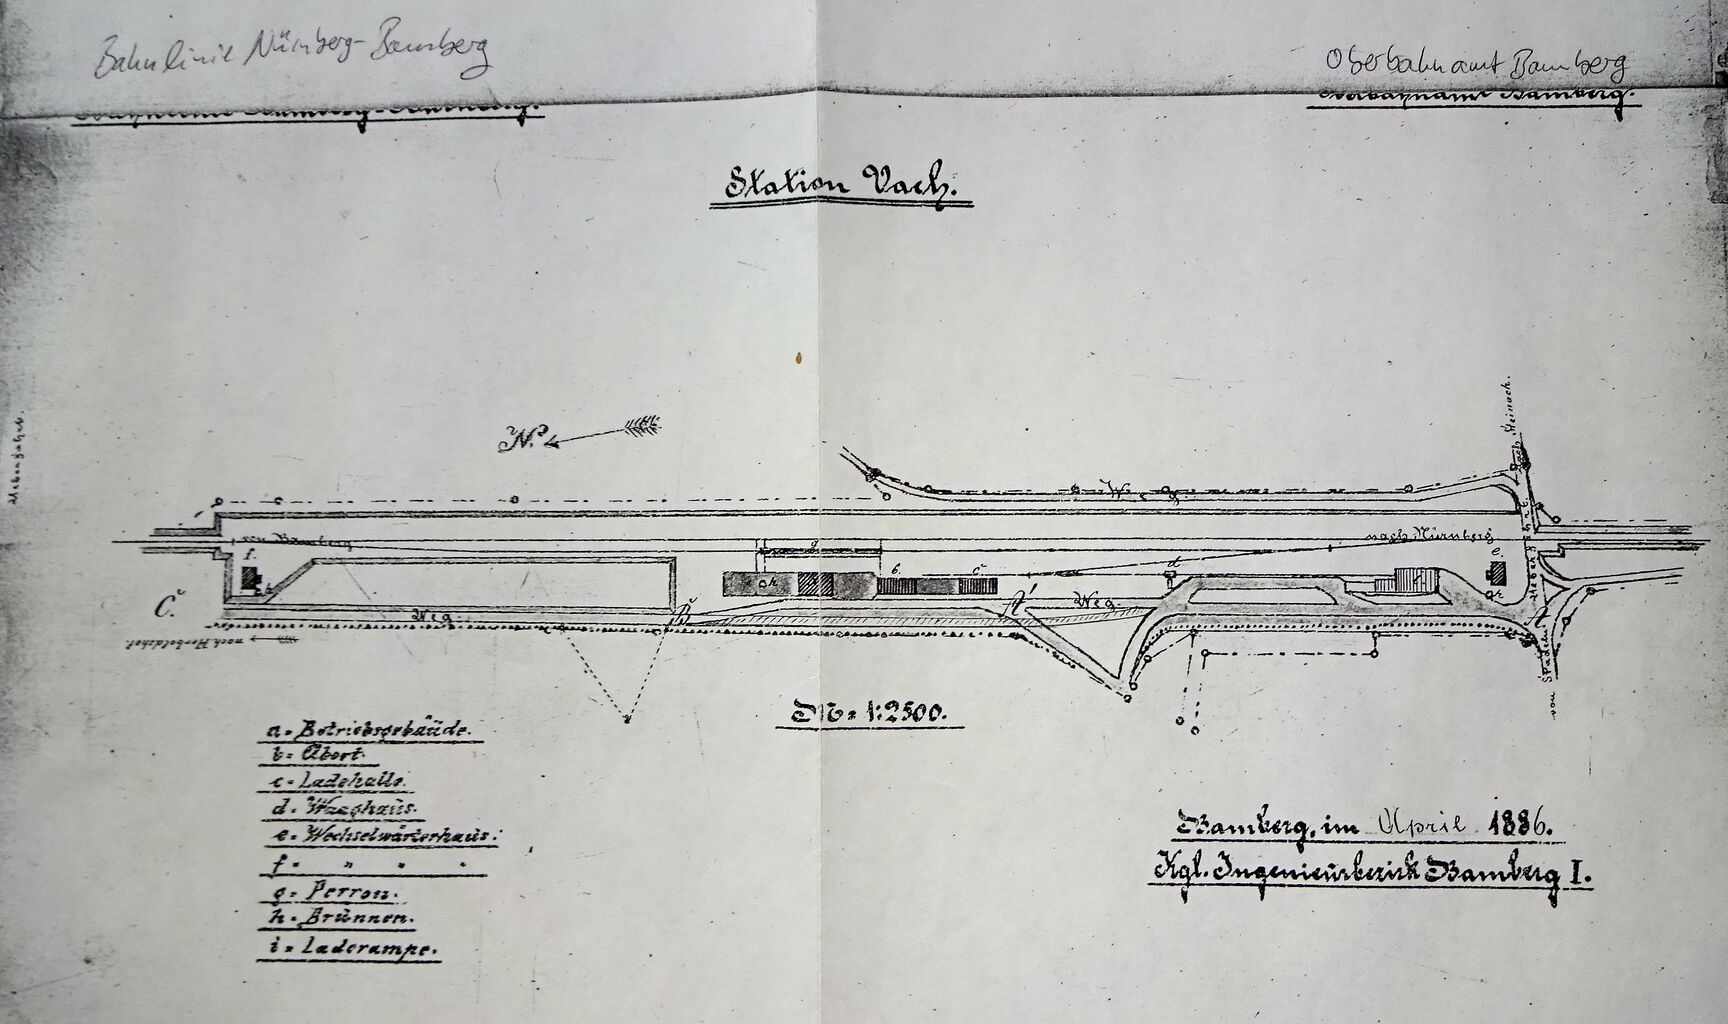 Bahnlinie Nürnberg-Bamberg
Oberbahnamt Bamberg
Station Vach.
N.
nach Steinach.
Weg
von Bamberg
g
nach Nürnberg
f.
h
b.
c.
d
e.
C.
Weg
B.
A'
Weg
A
von Stadeln
M = 1:2500.
a = Betriebsgebäude.
b = Abort.
c = Ladehalle.
d = Waaghaus.
e = Wechselwärterhaus.
f = " " "
g = Perron.
h = Brunnen.
i = Laderampe.
Bamberg, im April 1886.
Kgl. Ingenieurbezirk Bamberg I.